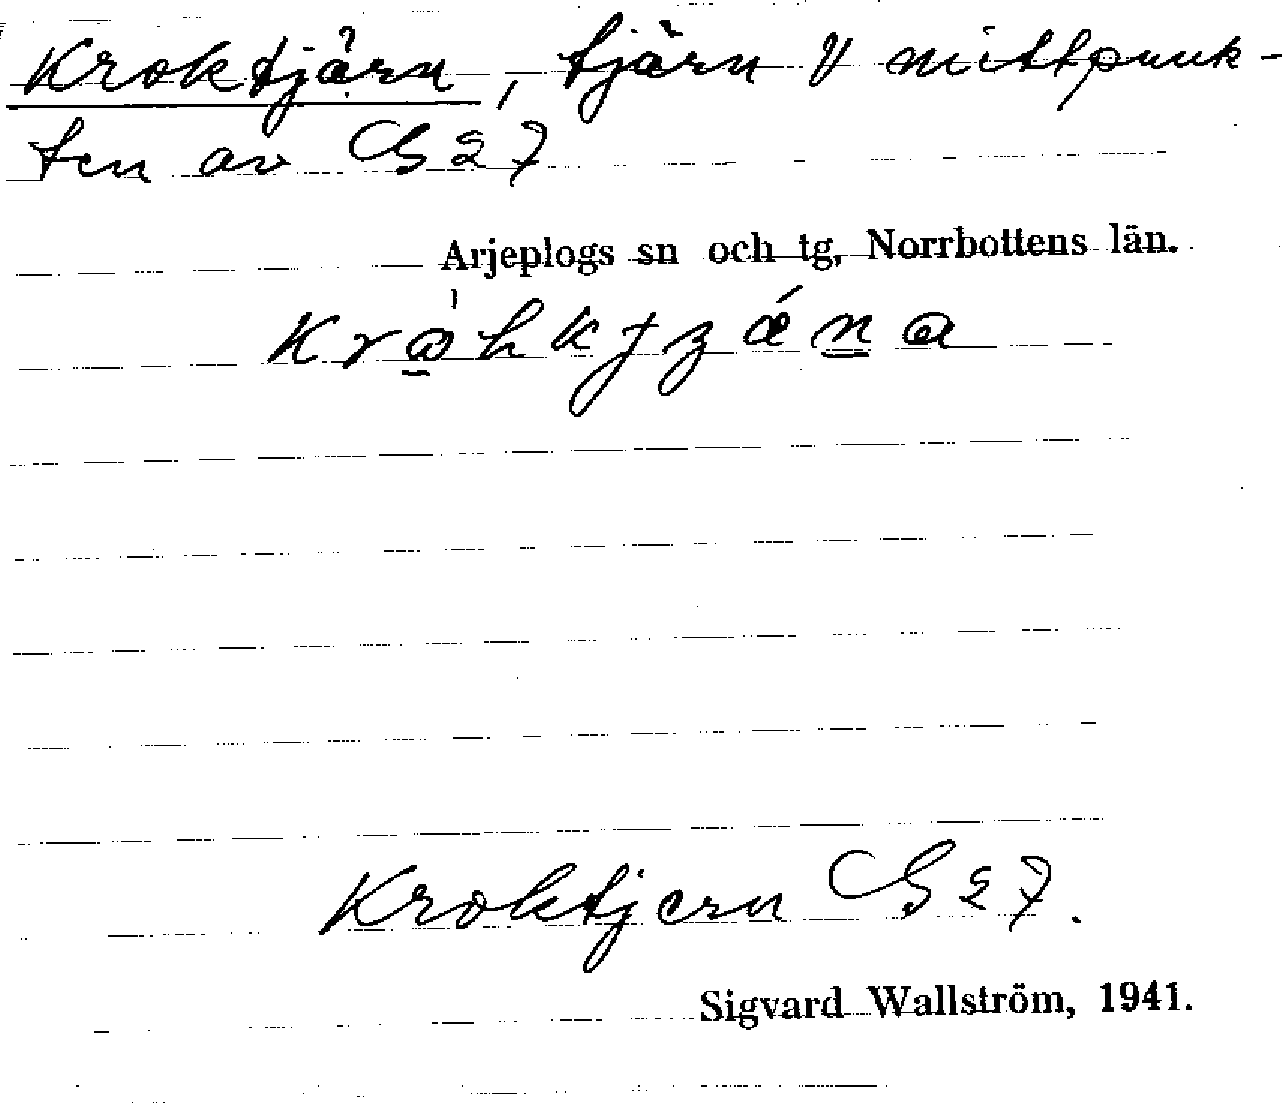 Kroktjärn, tjärn V mittpunk-
ten av G 27
Arjeplogs sn och tg, Norrbottens län.
Kroktjern G 27.
Sigvard Wallström, 1941.